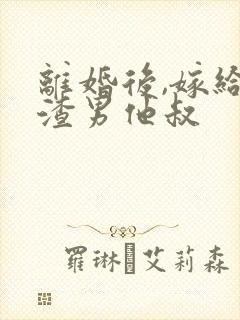 離婚後,嫁給
渣男他叔
羅琳艾莉森